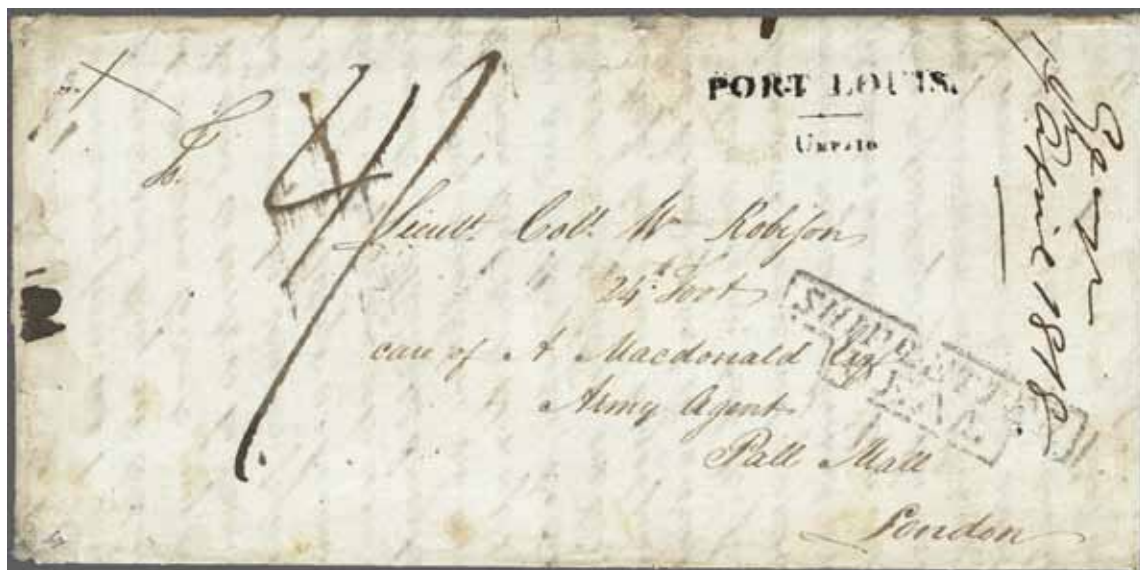 PORT LOUIS.
UNPAID
4/
Lieutt. Coll. W Robison
24th Foot
care of A Macdonald Esq
Army Agent
Pall Mall
London
SHIP LETTER
1818